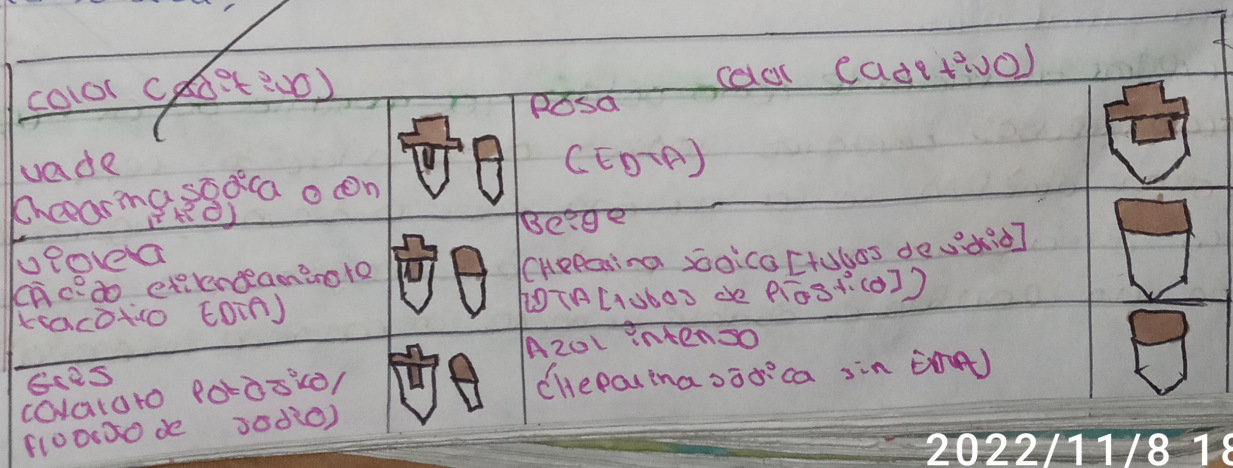 color (aditivo)
color (aditivo)
vade
(heparina sódica o con
litio)
Rosa
(EDTA)
violeta
(Ácido etilendiaminote
tracético EDTA)
Beige
(Heparina sódica [tubos de vidrio]
EDTA [tubos de plástico])
Gris
(oxalato potásico/
fluoruro de sodio)
Azul intenso
(Heparina sódica sin EDTA)
2022/11/8 18